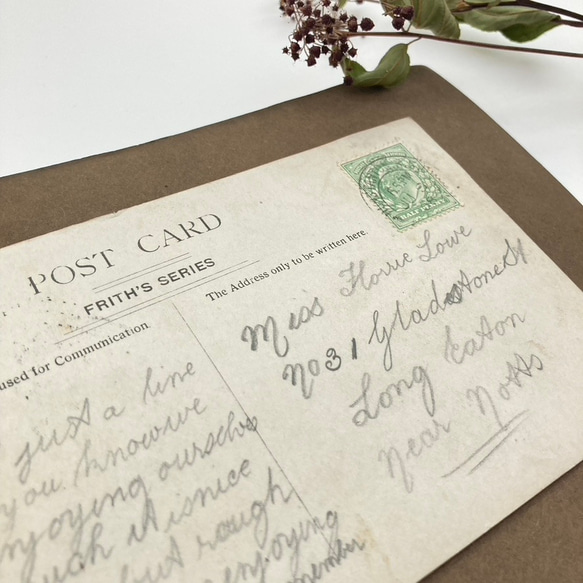 POST CARD
FRITH'S SERIES
used for Communication
The Address only to be written here.
HALF PENNY
Miss Florrie Lowe
No 31 Gladstone St
Long Eaton
near Notts
just a line
you know we
enjoying ourselves
it is nice
but rough
enjoying